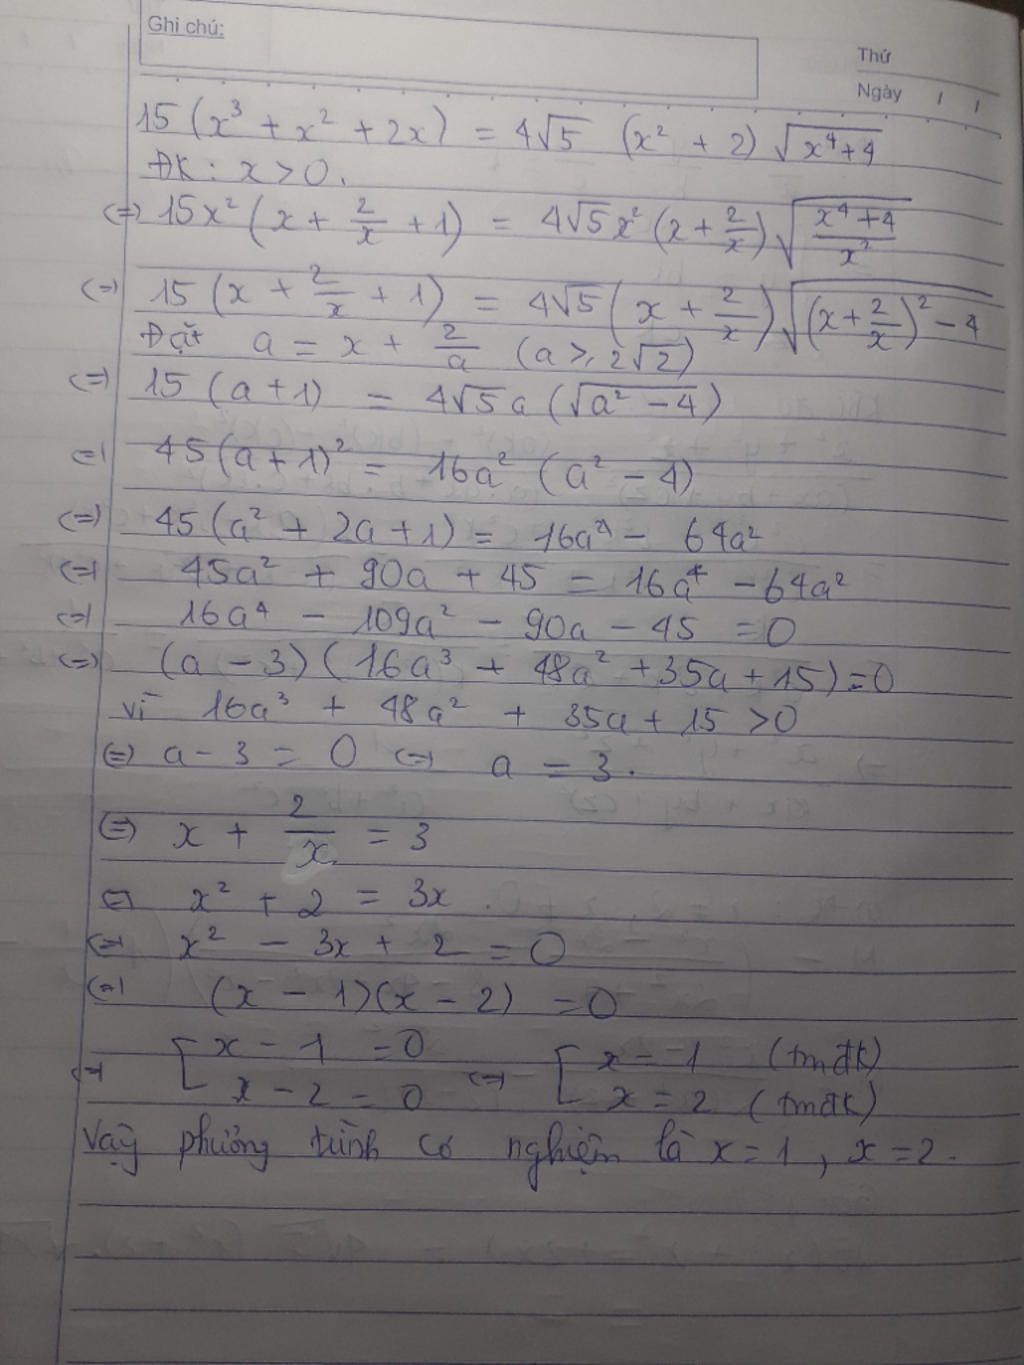 Ghi chú:
Thứ
Ngày / /
15 (x³ + x² + 2x) = 4√5 (x² + 2) √(x⁴+4)
ĐK: x > 0.
(=) 15x² (x + 2/x + 1) = 4√5 x² (x + 2/x) √((x⁴+4)/x²)
(=) 15 (x + 2/x + 1) = 4√5 (x + 2/x) √((x + 2/x)² - 4)
Đặt a = x + 2/a (a ≥ 2√2)
(=) 15 (a + 1) = 4√5 a (√(a² - 4))
(=) 45 (a + 1)² = 16a² (a² - 4)
(=) 45 (a² + 2a + 1) = 16a⁴ - 64a²
(=) 45a² + 90a + 45 = 16a⁴ - 64a²
(=) 16a⁴ - 109a² - 90a - 45 = 0
(=) (a - 3) (16a³ + 48a² + 35a + 15) = 0
vì 16a³ + 48a² + 35a + 15 > 0
(=) a - 3 = 0 (=) a = 3.
(=) x + 2/x = 3
(=) x² + 2 = 3x
(=) x² - 3x + 2 = 0
(=) (x - 1)(x - 2) = 0
(=) [ x - 1 = 0 (=) [ x = 1 (tmđk)
x - 2 = 0 x = 2 (tmđk)
Vậy phương trình có nghiệm là x = 1, x = 2.